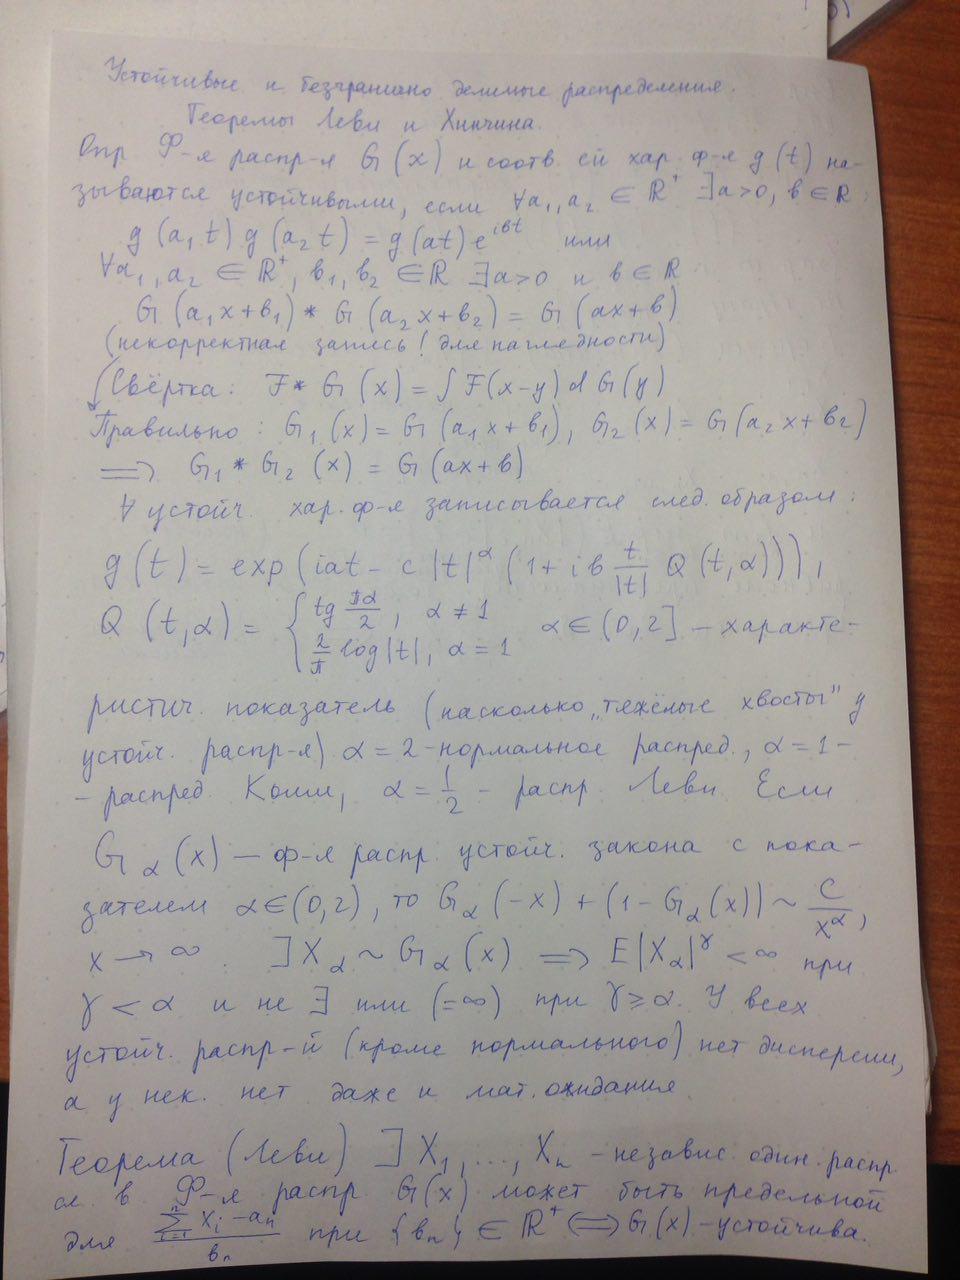 Устойчивые и безгранично делимые распределения.
Теоремы Леви и Хинчина.
Опр Ф-я распр-я G(x) и соотв. ей хар. ф-я g(t) на-
зываются устойчивыми, если ∀a₁, a₂ ∈ ℝ⁺ ∃a>0, b∈ℝ:
g(a₁t) g(a₂t) = g(at) e^{ibt} или
∀a₁, a₂ ∈ ℝ⁺, b₁, b₂ ∈ ℝ ∃a>0 и b∈ℝ
G(a₁x+b₁) * G(a₂x+b₂) = G(ax+b)
(некорректная запись! для наглядности)
Свёртка: F * G(x) = ∫F(x-y) dG(y)
Правильно: G₁(x) = G(a₁x+b₁), G₂(x) = G(a₂x+b₂)
⟹ G₁ * G₂(x) = G(ax+b)
∀ устойч. хар. ф-я записывается след. образом:
g(t) = exp(iat - c|t|^α (1 + ib t/|t| Q(t,α))),
Q(t,α) = { tg πα/2, α ≠ 1
2/π log|t|, α = 1 α∈(0,2] - характе-
ристич. показатель (насколько „тяжёлые хвосты" у
устойч. распр-я) α = 2 - нормальное распред., α = 1 -
- распред. Коши, α = 1/2 - распр. Леви Если
G_α(x) — ф-я распр. устойч. закона с пока-
зателем α∈(0,2), то G_α(-x) + (1 - G_α(x)) ~ C/x^α,
x → ∞. ∃ X_α ~ G_α(x) ⟹ E|X_α|^γ < ∞ при
γ < α и не ∃ или (=∞) при γ ≥ α. У всех
устойч. распр-й (кроме нормального) нет дисперсии,
а у нек. нет даже и мат. ожидания
Теорема (Леви) ∃ X₁, ..., Xₙ - независ. один. распр
сл. в. Ф-я распр. G(x) может быть предельной
для (∑_{i=1}^{n} Xᵢ - aₙ)/bₙ при {bₙ} ∈ ℝ⁺ ⟺ G(x) - устойчива.